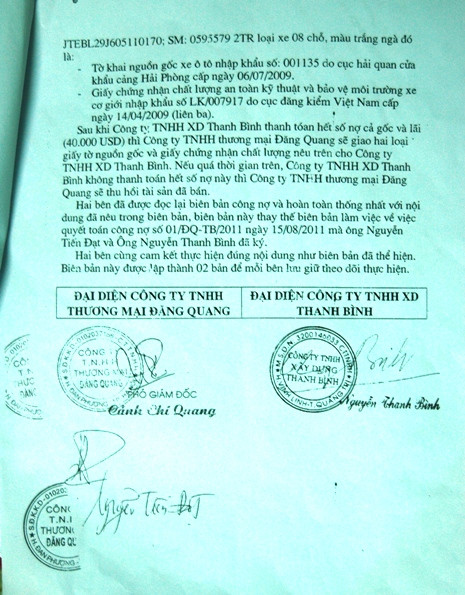 JTEBL29J605110170; SM: 0595579 2TR loại xe 08 chỗ, màu trắng ngà đó
là:
- Tờ khai nguồn gốc xe ô tô nhập khẩu số: 001135 do cục hải quan cửa
khẩu cảng Hải Phòng cấp ngày 06/07/2009.
- Giấy chứng nhận chất lượng an toàn kỹ thuật và bảo vệ môi trường xe
cơ giới nhập khẩu số LK/007917 do cục đăng kiểm Việt Nam cấp
ngày 14/04/2009 (liên ba).
Sau khi Công ty TNHH XD Thanh Bình thanh tóan hết số nợ cả gốc và lãi
(40.000 USD) thì Công ty TNHH thương mại Đăng Quang sẽ giao hai loại
giấy tờ nguồn gốc và giấy chứng nhận chất lượng nêu trên cho Công ty
TNHH XD Thanh Bình. Nếu quá thời gian trên, Công ty TNHH XD Thanh
Bình không thanh toán hết số nợ này thì Công ty TNHH thương mại Đăng
Quang sẽ thu hồi tài sản đã bán.
Hai bên đã được đọc lại biên bản công nợ và hoàn toàn thống nhất với nội
dung đã nêu trong biên bản, biên bản này thay thế biên bản làm việc về việc
quyết toán công nợ số 01/ĐQ-TB/2011 ngày 15/08/2011 mà ông Nguyễn
Tiến Đạt và Ông Nguyễn Thanh Bình đã ký.
Hai bên cùng cam kết thực hiện đúng nội dung như biên bản đã thể hiện.
Biên bản này được lập thành 02 bản để mỗi bên lưu giữ theo dõi thực hiện.
ĐẠI DIỆN CÔNG TY TNHH
THƯƠNG MẠI ĐĂNG QUANG
ĐẠI DIỆN CÔNG TY TNHH XD
THANH BÌNH
CÔNG TY
T.N.H.H
THƯƠNG MẠI
ĐĂNG QUANG
PHÓ GIÁM ĐỐC
Cảnh Chí Quang
CÔNG TY TNHH
XÂY DỰNG
THANH BÌNH
Nguyễn Thanh Bình
Nguyễn Tiến Đạt
CÔNG
T.N.
THƯƠN
ĐĂNG QU